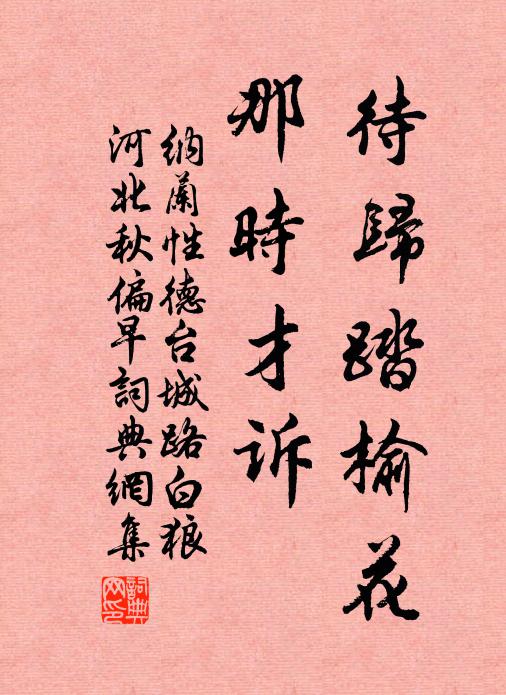 待歸踏榆花
那時才訴
納蘭性德台城路白狼
河北秋偏早詞典網集
詞典网印